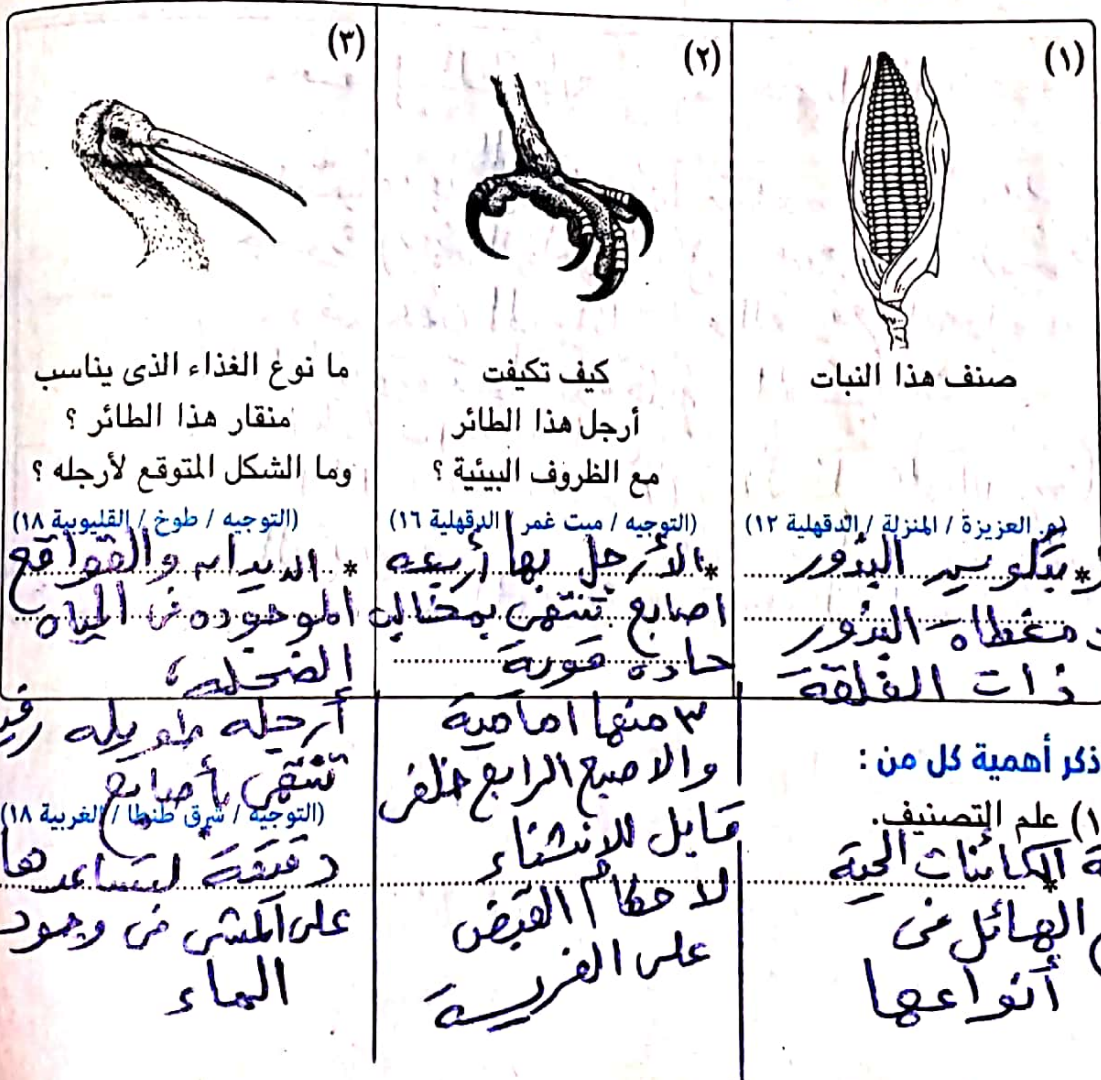 (١)
صنف هذا النبات
(م. العزيزة / المنزلة / الدقهلية ١٢)
* بتكوين البذور
مغطاه البذور
ذات الفلقة
(٢)
كيف تكيفت
أرجل هذا الطائر
مع الظروف البيئية ؟
(التوجيه / ميت غمر / الدقهلية ١٦)
* الأرجل بها أربعه
اصابع تنتهى بمخالب
حاده قوية
٣ منها امامية
والاصبع الرابع خلفى
قابل للانثناء
لاحكام القبض
على الفريسة
(٣)
ما نوع الغذاء الذى يناسب
منقار هذا الطائر ؟
وما الشكل المتوقع لأرجله ؟
(التوجيه / طوخ / القليوبية ١٨)
* الديدان والقواقع
الموجوده فى المياه
الضحله
أرجله طويله
تنتهى بأصابع
(التوجيه / شرق طنطا / الغربية ١٨)
دقيقة لتساعدها
على المشى فى وجود
الماء
ذكر أهمية كل من :
١) علم التصنيف.
* الكائنات الحية
الهائل فى
أنواعها